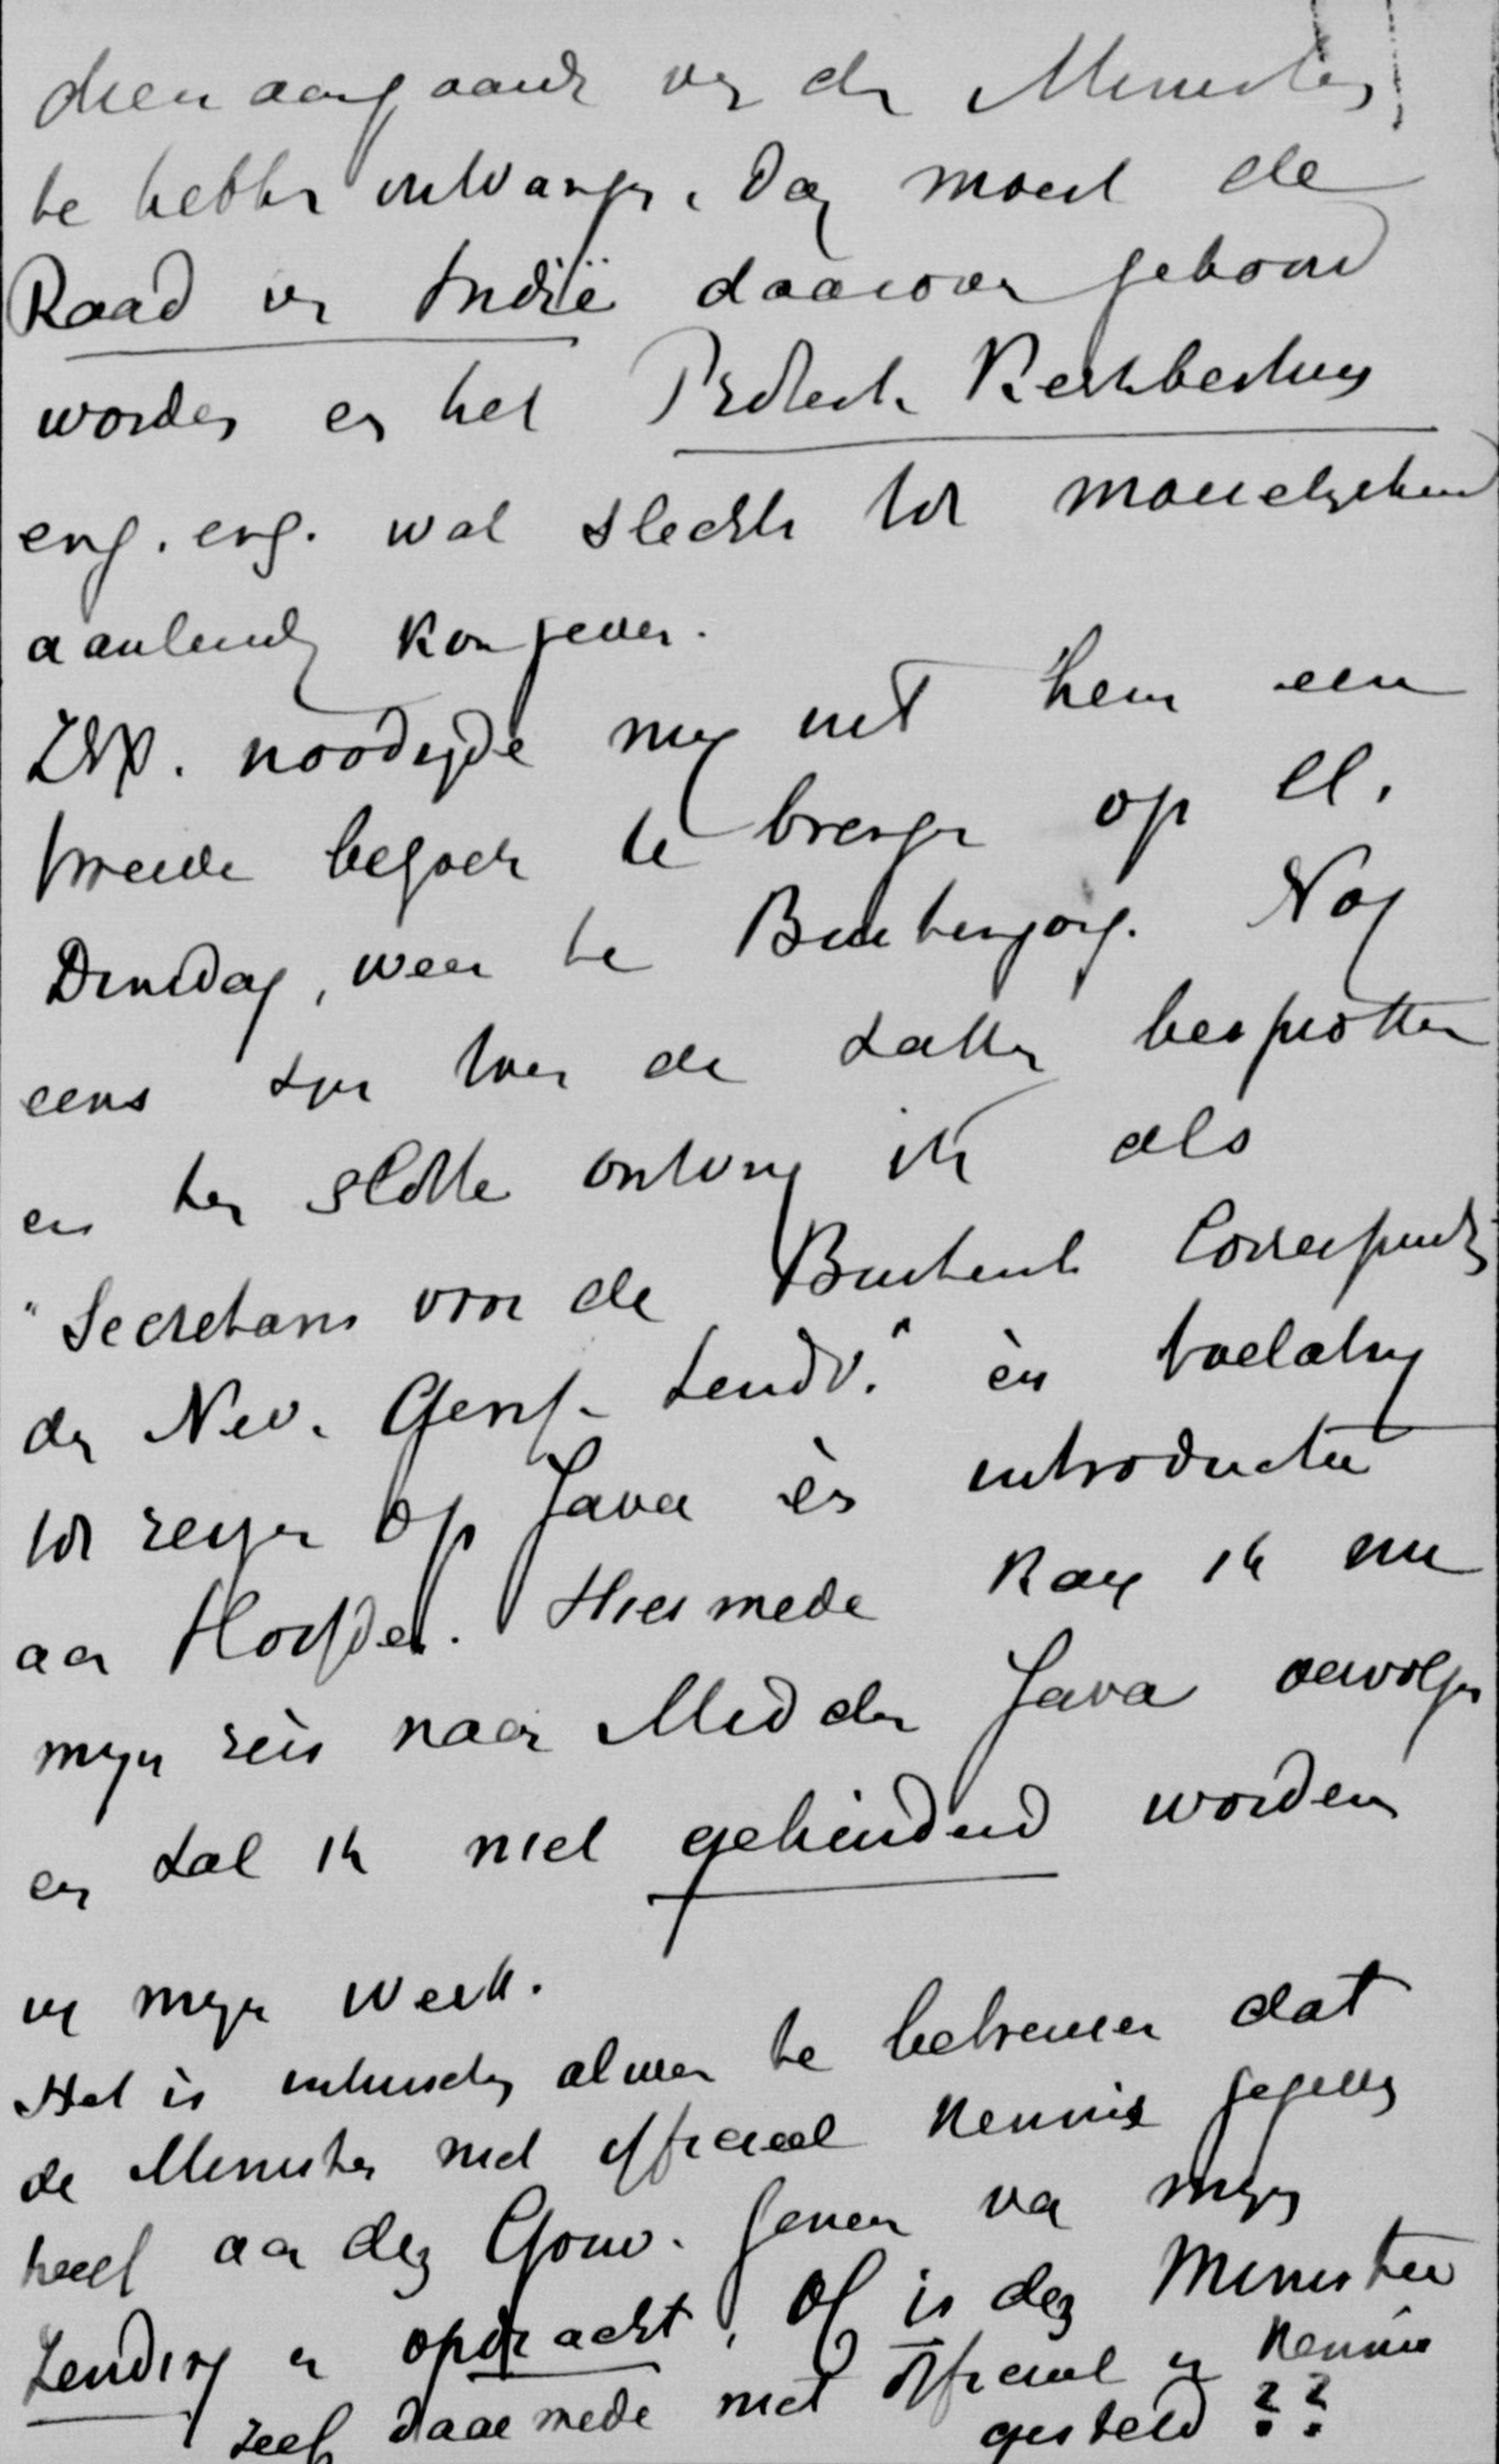 dienaangaande v. d. Minister
te hebben ontvangen. Dan moest de
Raad v. Indië daarover gehoord
worden en het Protest. Kerkbestuur
enz. enz. wat slechts tot moeielijkheid
aanleiding kon geven.
ZExc. noodigde mij uit hem een
tweede bezoek te brengen op ll.
Dinsdag, weer te Buitenzorg. Nog
eens zijn toen de zaken besproken
en ten slotte ontving ik als
"Secretaris voor de Buitenl. Correspond.
der Ned. Geref. Zendv." èn toelating
tot reizen op Java èn introductie
aan Hoofden. Hiermede kan ik nu
mijn reis naar Midden Java vervolgen
en zal ik niet gehinderd worden
in mijn werk.
Het is intusschen alweer te betreuren dat
de Minister niet officieel kennis gegeven
heeft aan den Gouv. Gener. van mijn
Zending en opdracht, òf is den Minister
zelf daarmede niet officieel in kennis
gesteld??